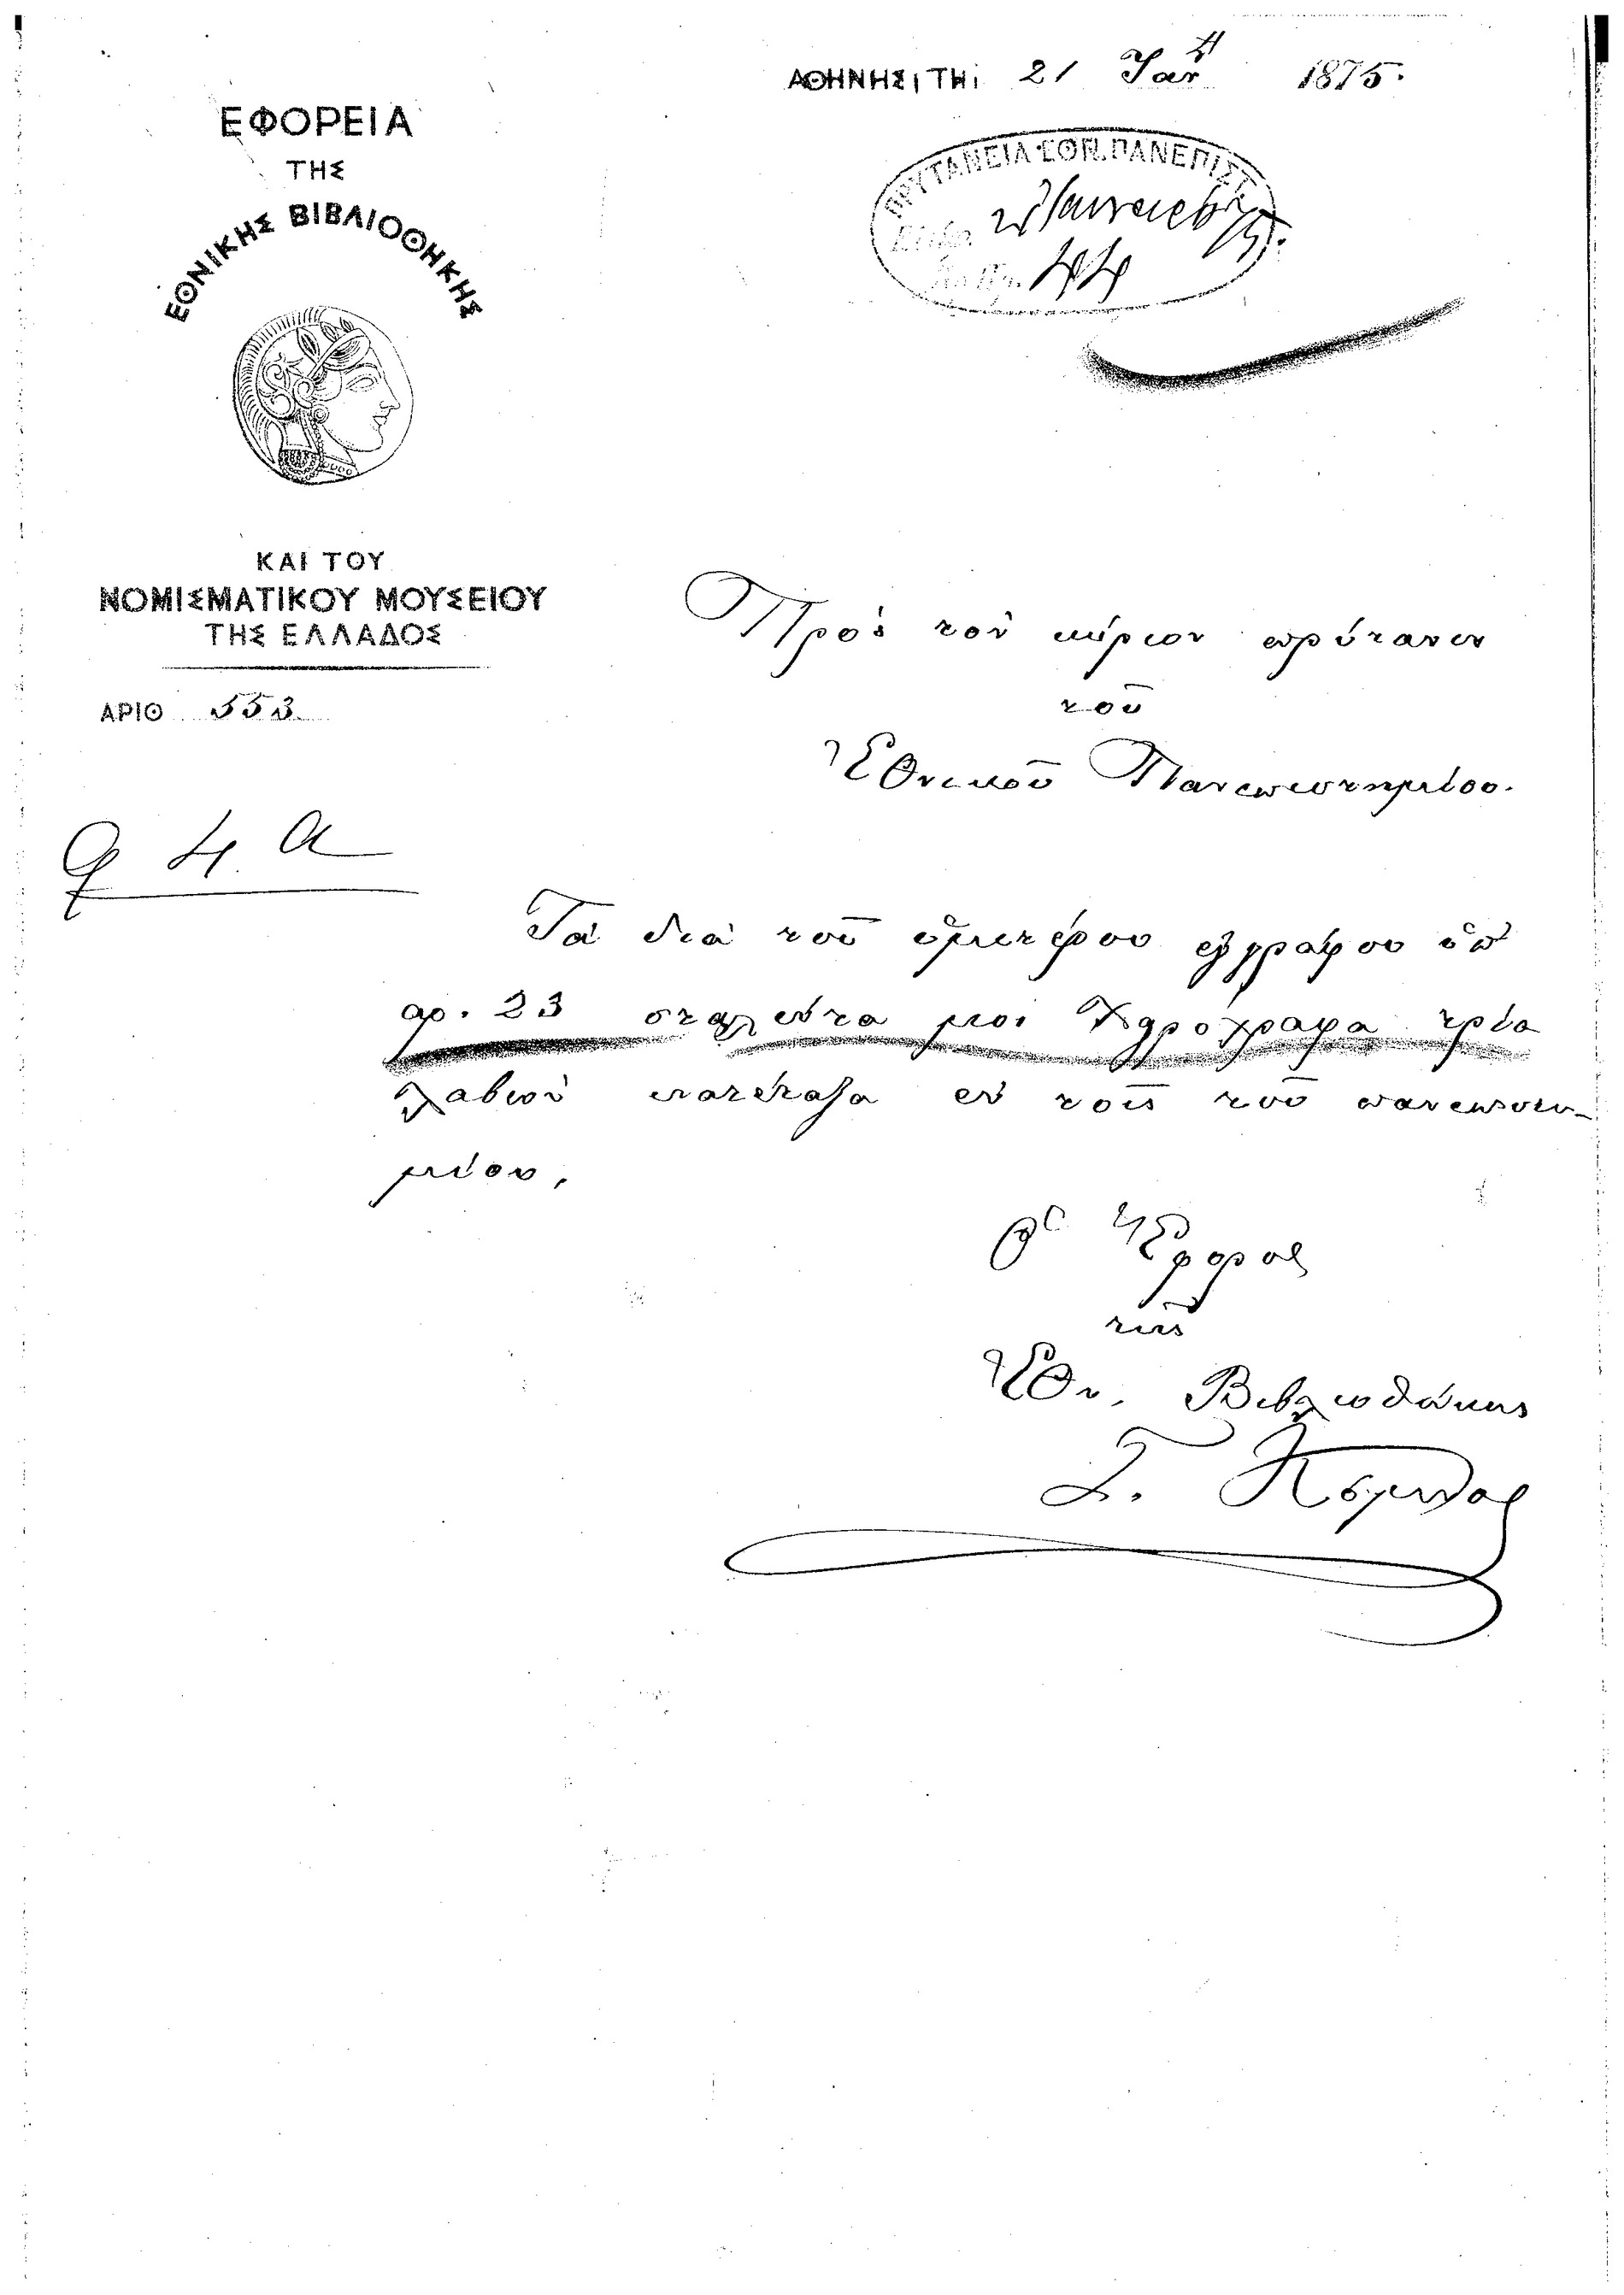 ΑΘΗΝΗΣΙ, ΤΗι 21 Ἰαν 1875.
ΕΦΟΡΕΙΑ
ΤΗΣ
ΕΘΝΙΚΗΣ ΒΙΒΛΙΟΘΗΚΗΣ
ΚΑΙ ΤΟΥ
ΝΟΜΙΣΜΑΤΙΚΟΥ ΜΟΥΣΕΙΟΥ
ΤΗΣ ΕΛΛΑΔΟΣ
ΑΡΙΘ 553
ΠΡΥΤΑΝΕΙΑ ΕΘΝ. ΠΑΝΕΠΙΣΤ.
Πρὸς τὸν κύριον πρύτανιν
τοῦ
Ἐθνικοῦ Πανεπιστημίου.
Τὰ διὰ τοῦ ὑμετέρου ἐγγράφου ὑπ'
ἀρ. 23 σταλέντα μοι χειρόγραφα τρία
λαβὼν κατέταξα ἐν τοῖς τοῦ πανεπιστη-
μίου.
Ὁ Ἔφορος
τῆς
Ἐθν. Βιβλιοθήκης